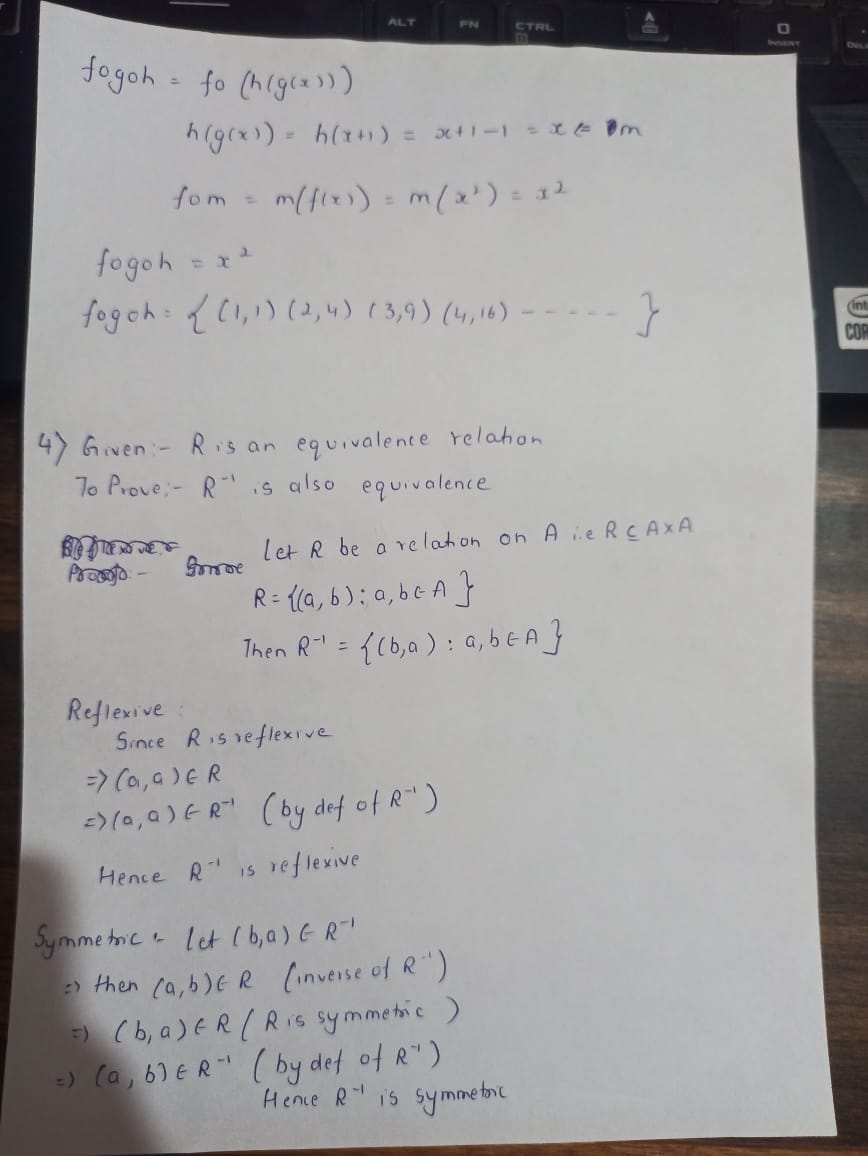 ALT FN CTRL A INSERT DEL
fogoh = fo (h(g(x)))
h(g(x)) = h(x+1) = x+1-1 = x = m
fom = m(f(x)) = m(x²) = x²
fogoh = x²
fogoh = { (1,1) (2,4) (3,9) (4,16) ----- }
int
COR
4) Given:- R is an equivalence relation
To Prove:- R⁻¹ is also equivalence
Proof:- Let R be a relation on A i.e R ⊆ A×A
R = {(a, b) : a, b ∈ A }
Then R⁻¹ = {(b,a) : a, b ∈ A }
Reflexive :
Since R is reflexive
=> (a, a) ∈ R
=> (a, a) ∈ R⁻¹ (by def of R⁻¹)
Hence R⁻¹ is reflexive
Symmetric :- let (b,a) ∈ R⁻¹
=> then (a,b) ∈ R (inverse of R⁻¹)
=> (b,a) ∈ R (R is symmetric)
=> (a, b) ∈ R⁻¹ (by def of R⁻¹)
Hence R⁻¹ is symmetric